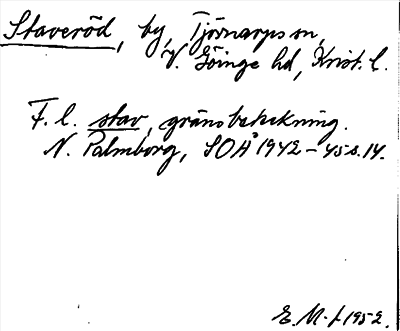 Staveröd, by, Tjörnarps sn,
V. Göinge hd, Krist. l.
F. l. stav, gränsbeteckning.
N. Palmborg, SOÅ 1942–45 s. 14.
E. M-f. 1952.